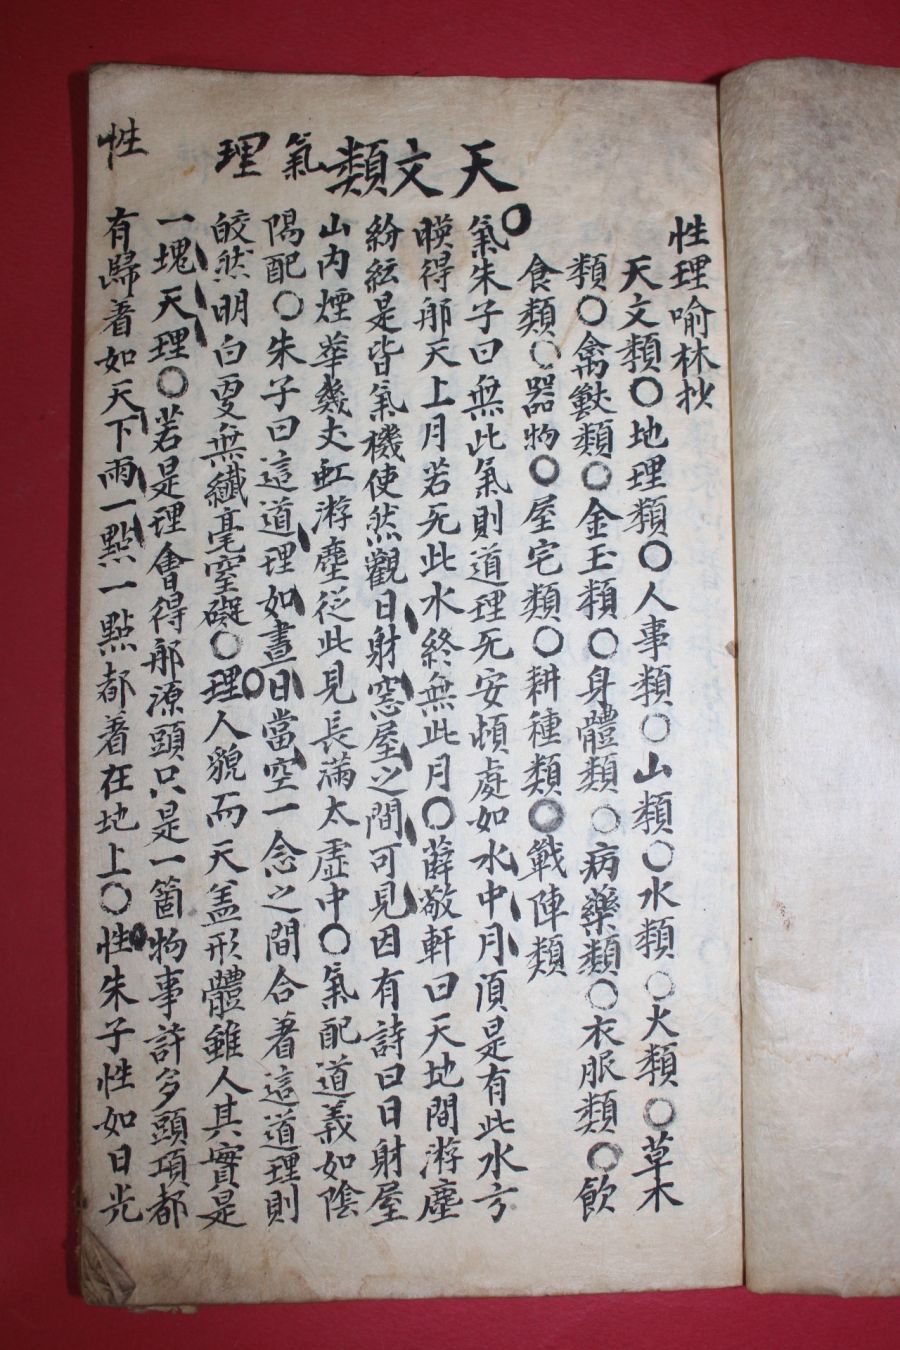 性理喻林抄
天文類○地理類○人事類○山類○水類○火類○草木
類○禽獸類○金玉類○身體類○病藥類○衣服類○飮
食類○器物○屋宅類○耕種類○戰陣類
天文類
氣
理
性
○氣朱子曰無此氣則道理无安頓處如水中月湏是有此水方
暎得那天上月若无此水終無此月○薛敬軒曰天地間游塵
紛紜是皆氣機使然觀日射窓屋之間可見因有詩曰日射屋
山內煙華幾丈虹游塵從此見長滿太虛中○氣配道義如陰
陽配○朱子曰這道理如晝日當空一念之間合著這道理則
皎然明白更無纖毫窒礙○理人貌而天盖形體雖人其實是
一塊天理○若是理會得那源頭只是一箇物事許多頭項都
有歸着如天下雨一點一點都着在地上○性朱子性如日光